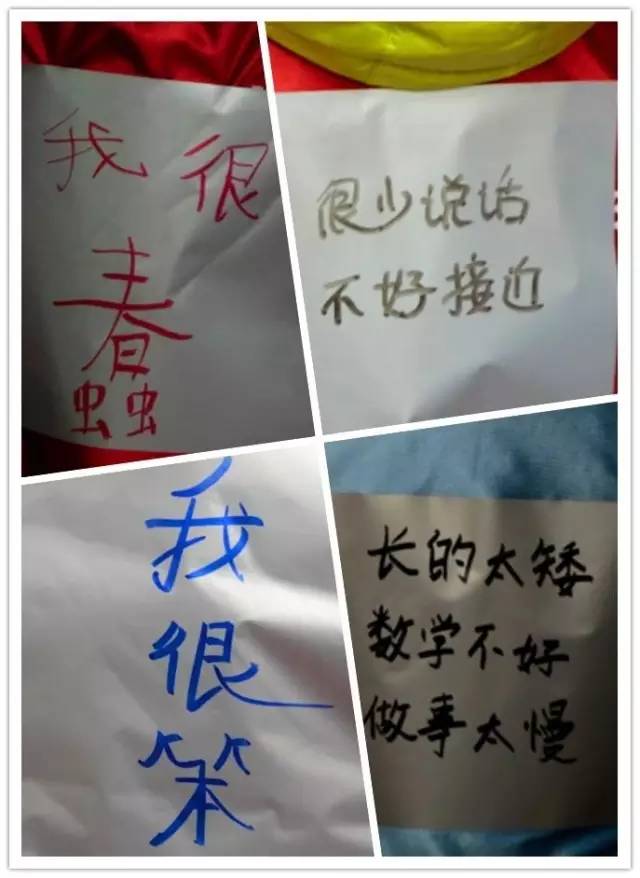 我很
蠢
很少说话
不好接近
我
很
笨
长的太矮
数学不好
做事太慢